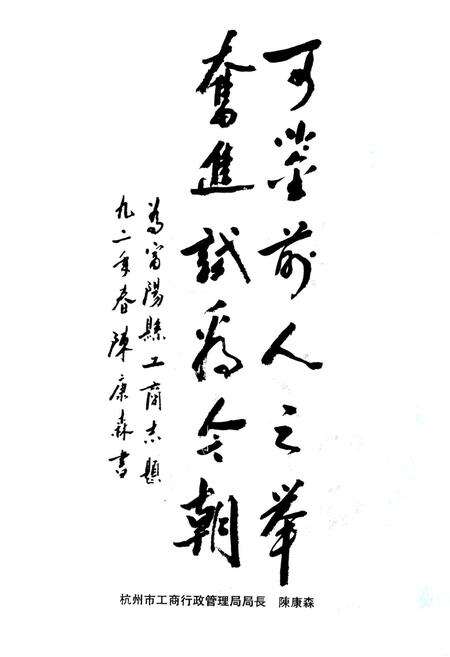 可鉴前人之举
奮進試看今朝
為富陽縣工商志題
九二年春陳康森書
杭州市工商行政管理局局長 陳康森